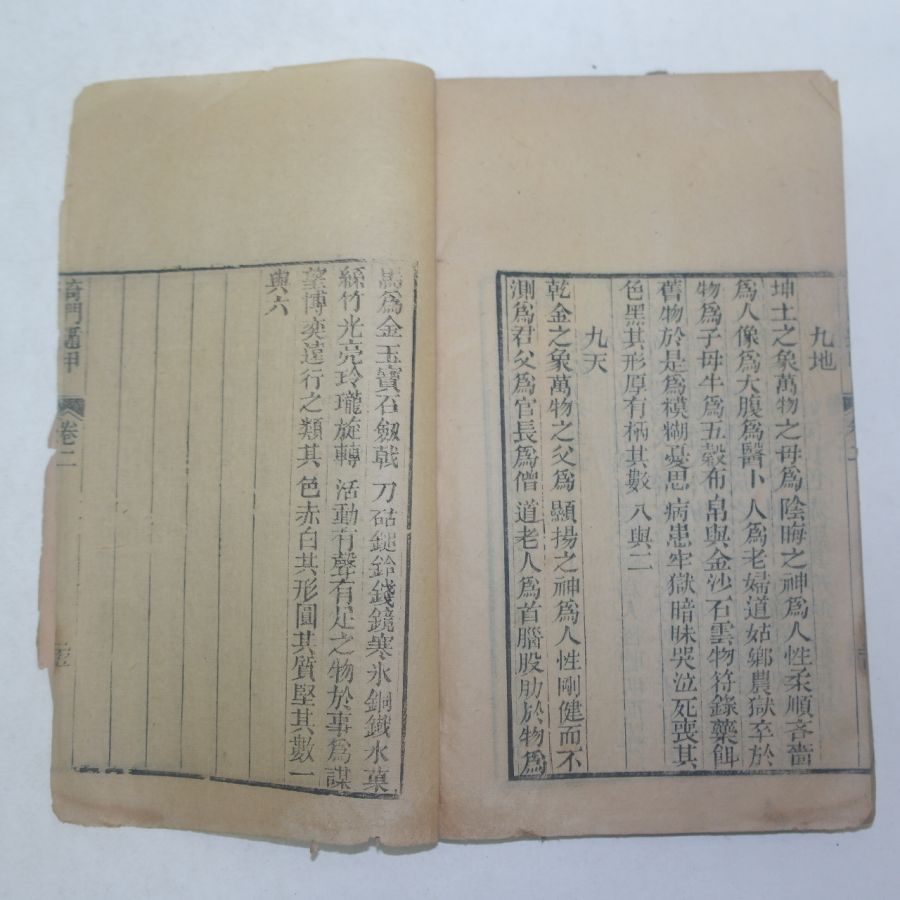 九地
坤土之象萬物之母爲陰晦之神爲人性柔順吝嗇
爲人像爲大腹爲醫卜人爲老婦道姑鄉農獄卒於
物爲子母牛爲五穀布帛與金沙石雲物符錄藥餌
舊物於是爲模糊憂思病患牢獄暗昧哭泣死喪其
色黑其形厚有柄其數八與二
九天
乾金之象萬物之父爲顯揚之神爲人性剛健而不
測爲君父爲官長爲僧道老人爲首腦股肋於物爲
馬爲金玉寶石劔戟刀砧鎚鈴錢鏡寒氷銅鐵水菓
絲竹光亮玲瓏旋轉活動有聲有足之物於事爲謀
望博奕遠行之類其色赤白其形圓其質堅其數一
與六
奇門遁甲
卷二